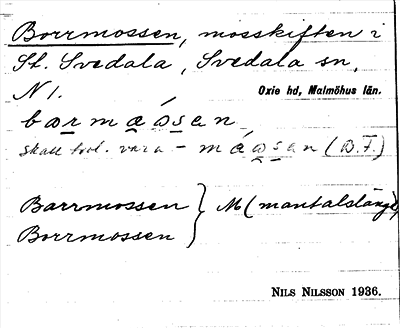 Borrmossen, mosskiften i
St. Svedala, Svedala sn,
N 1.
Oxie hd, Malmöhus län.
skall tvl. vara – (D.F.)
Barrmossen } M (mantalslängd)
Borrmossen
NILS NILSSON 1936.